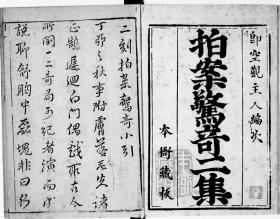 即空觀主人編次
拍案驚奇二集
本衙藏板
二刻拍案驚奇小引
丁卯之秋事附膚落毛失諸
正鵠遲迴白門偶戲取古今
所聞一二奇局可紀者演而成
說聊舒胸中磊塊非曰行